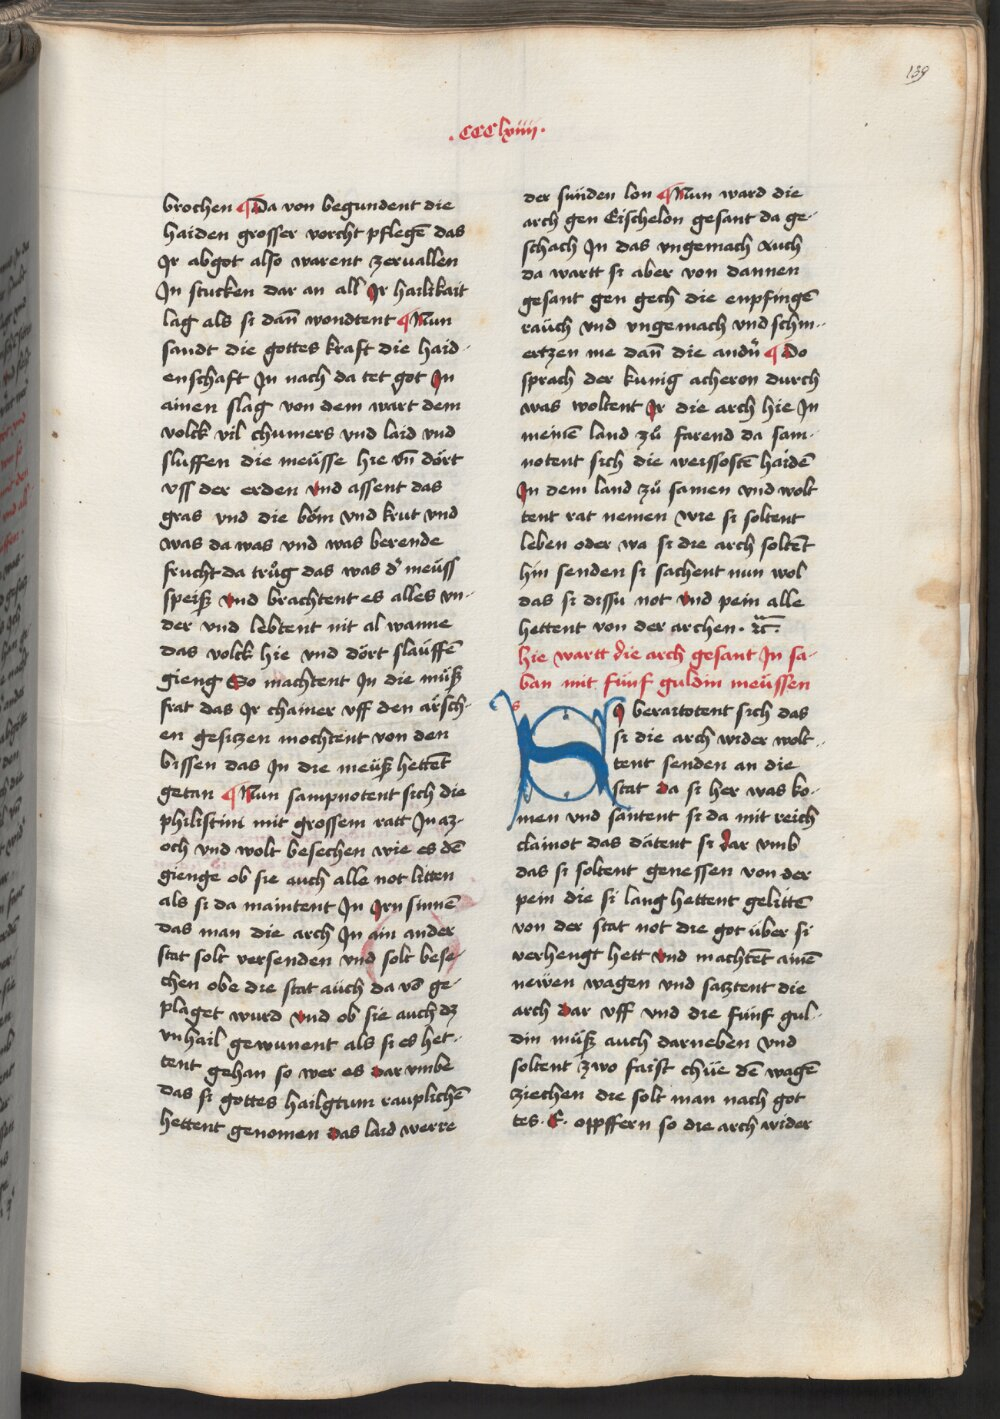 139
.CCClxiiii.
brochen ¶ Da von begundent die
haiden grosser vorcht pflegē das
Jr abgot also warent zervallen
Jn stucken dar an all Jr hailikait
lag als si dañ wondtent ¶ Nun
sandt die gottes kraft die haid-
enschaft Jn nach da tet got Jn
ainen slag von dem wart dem
volck vil chumers vnd laid vnd
sluffen die meüsse hie vn̄ dört
vss der erden vnd assent das
gras vnd die böm vnd krut vnd
was da was vnd was berende
frucht da trůg das was dʼ meüss
speiß vnd brachtent es alles vn-
der vnd lebtent nit al wanne
das volck hie vnd dört slauffē
gieng So machtent Jn die müß
frat das Jr chainer vff den ärsch-
en gesitzen mochtent von den
bissen das Jn die meüß hettēt
getan ¶ Nun sampnotent sich die
philistini mit grossem ratt Jn az-
och vnd wolt besechen wie es dē
gienge ob sie auch alle not litten
als si da maintent Jn Jrn sinnē
das man die arch Jn ain ander
stat solt versenden vnd solt bese-
chen obe die stat aüch da võ ge-
plaget wurd vnd ob sie auch dz
vnhail gewunent als si es het-
tent gehan so wer es dar vmbe
das si gottes hailgtum rauplichē
hettent genomen das laid werre
der sünden lon ¶ Nun ward die
arch gen Eischelon gesant da ge-
schach Jn das vngemach Auch
da wartt si aber von dannen
gesant gen gech die enpfingē
raüch vnd vngemach vnd schm-
ertzen me dañ die andʼn ¶ Do
sprach der kunig acheron durch
was woltent Jr die arch hie Jn
meinē land zů farend da sam-
notent sich die weissostē haidē
Jn dem land zů samen vnd wolt
tent rat nemen wie si soltent
leben oder wa si die arch soltēt
hin senden si sachent nun wol
das si dissu not vnd pein alle
hettent von der archen. ꝛc̄.
hie wartt die arch gesant Jn sa-
ban mit fünf guldin meüssen
SJ berattotent sich das
si die arch wider wolt-
tent senden an die
stat da si her was ko-
men vnd santent si da mit reich
clainot das dätent si dar vmb
das si soltent genessen von der
pein die si lang hettent gelittē
von der stat not die got über si
verhengt hett vnd machtēt ainē
newen wagen vnd satztent die
arch dar vff vnd die fünf gul-
din müß auch darneben vnd
soltent zwo faist chüe dē wagē
ziechen die solt man nach got
tes. E. oppffern so die arch wider